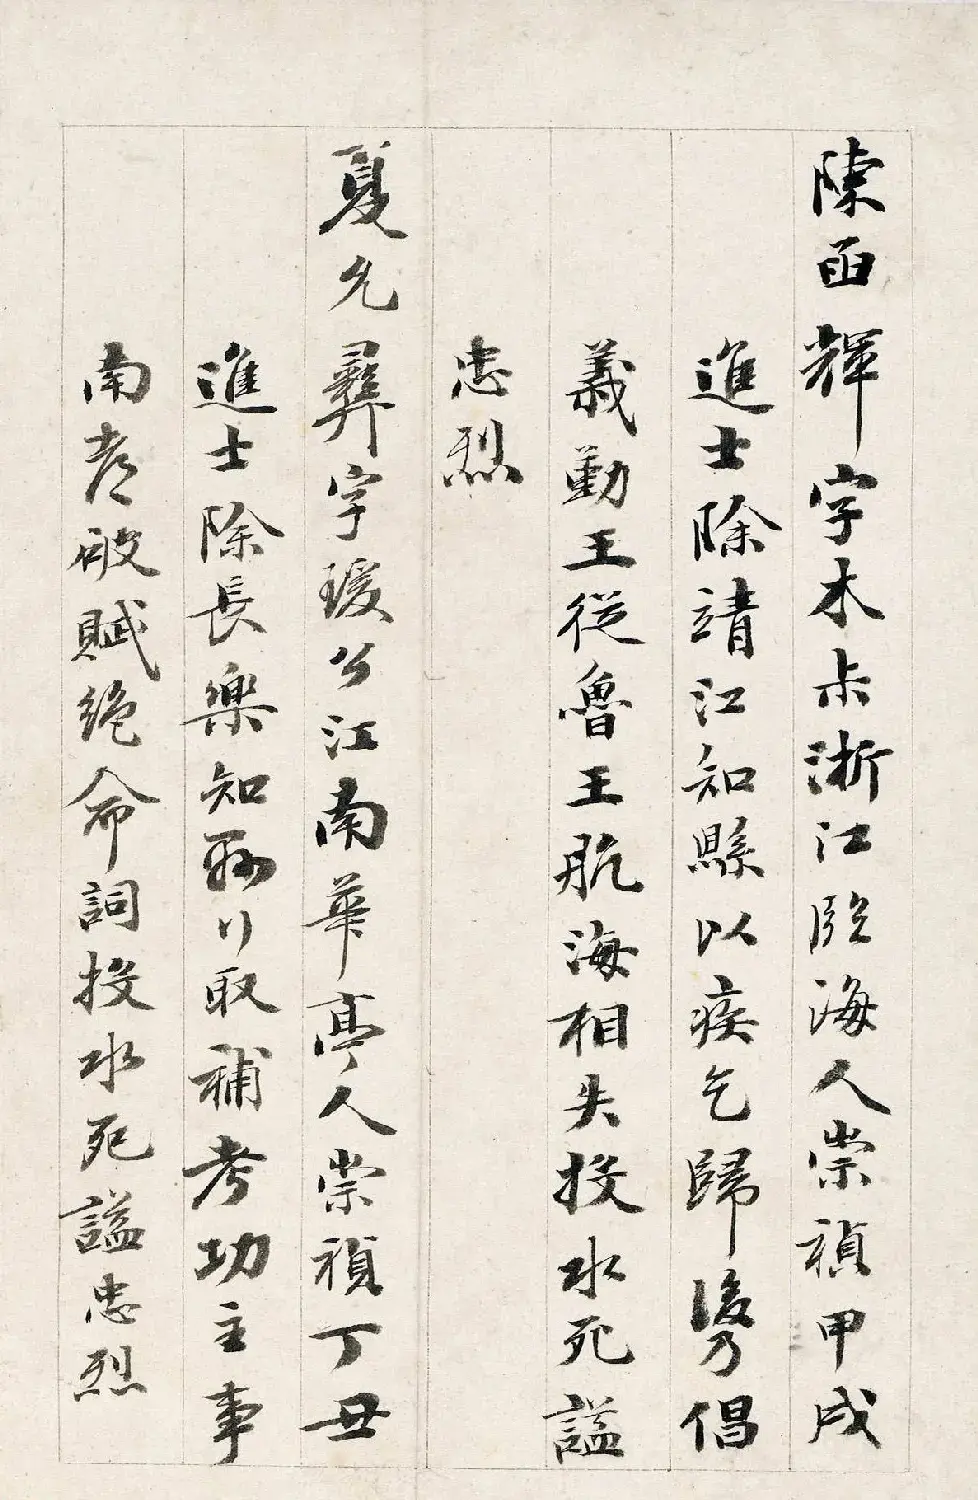 陳函輝字木尗浙江臨海人崇禎甲戌
進士除靖江知縣以疾乞歸後乃倡
義勤王從魯王航海相失投水死謚
忠烈
夏允彝字瑗公江南華亭人崇禎丁丑
進士除長樂知縣行取補考功主事
南都破賦絶命詞投水死謚忠烈